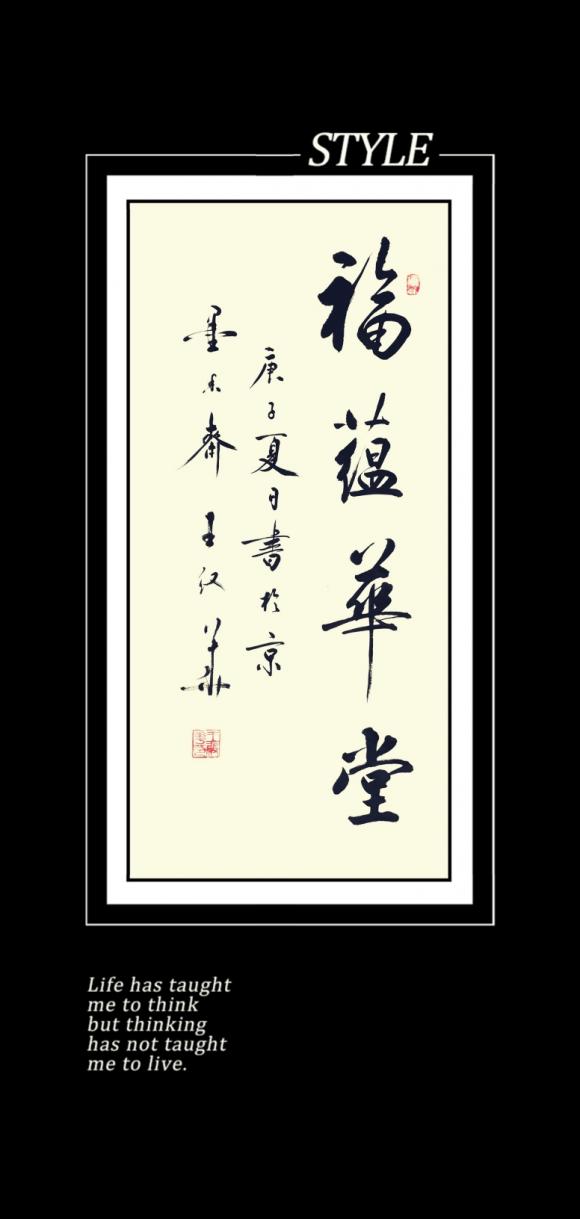 STYLE
福蕴華堂
庚子夏日書於京
墨禾齋王汉華
Life has taught
me to think
but thinking
has not taught
me to live.